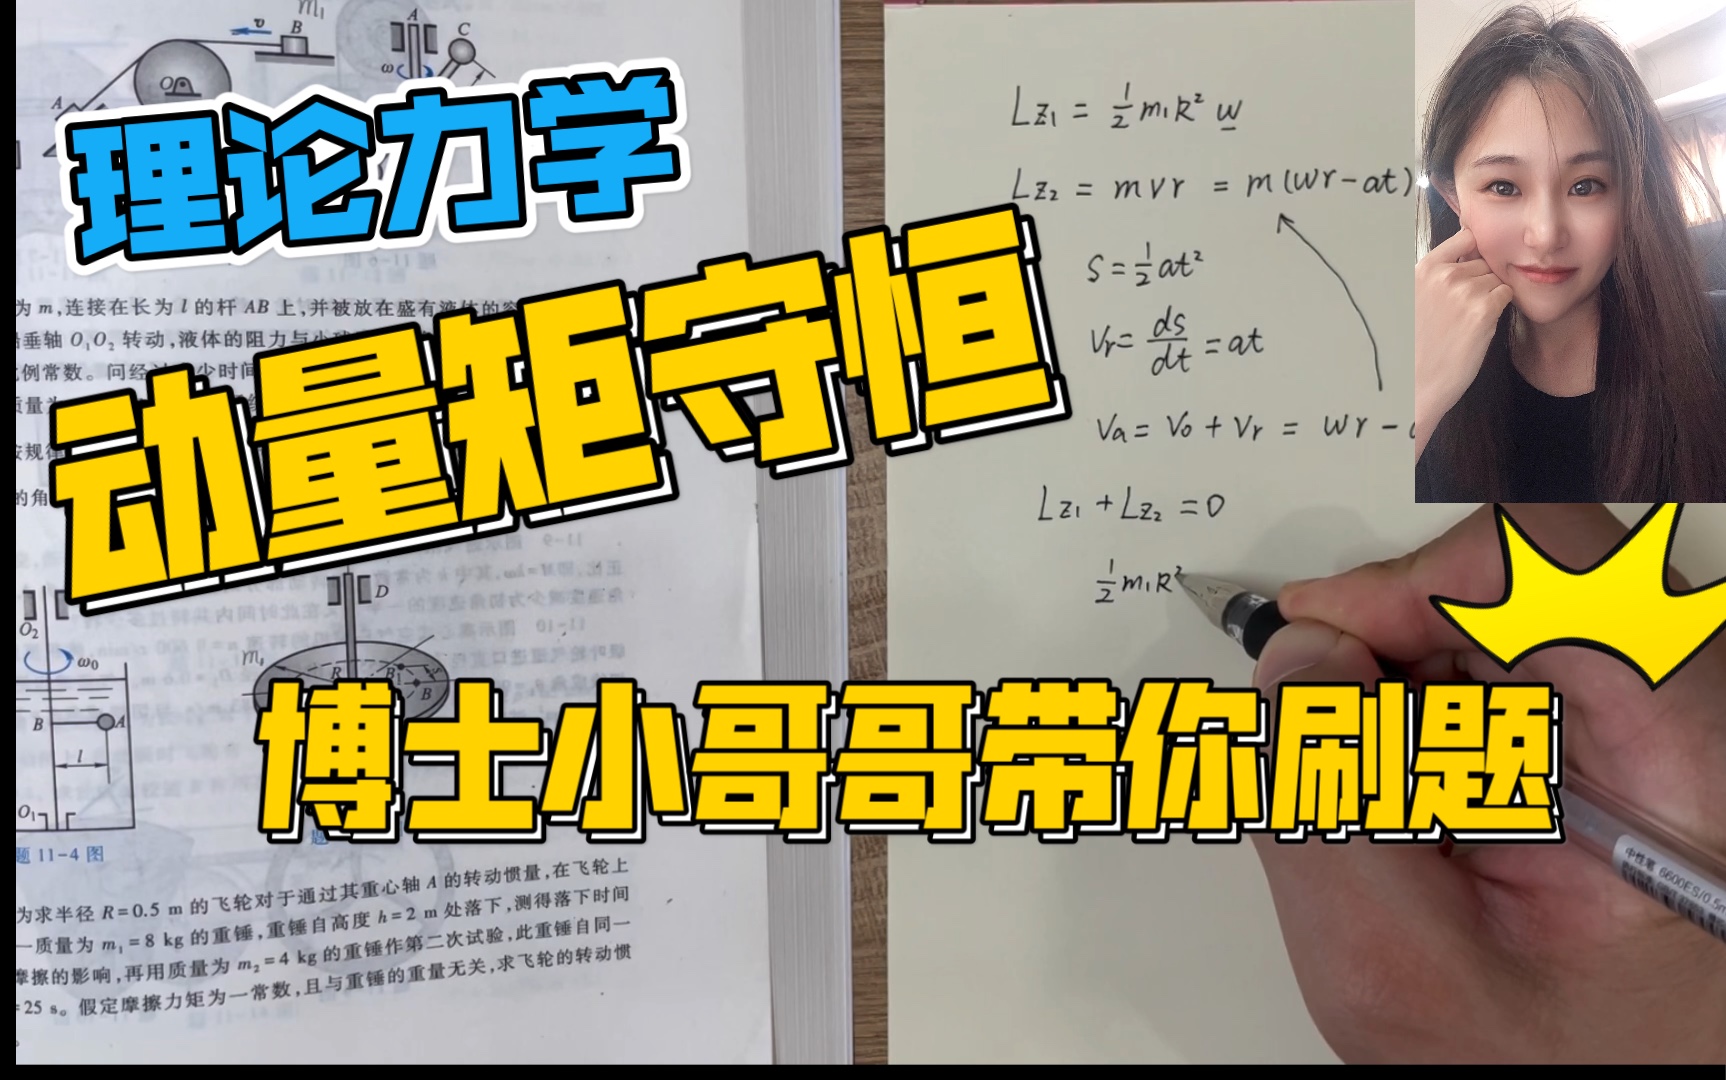 m₁
A
C
B
v
ω
O
A
理论力学
动量矩守恒
博士小哥哥带你刷题
为 m,连接在长为 l 的杆 AB 上,并被放在盛有液体的
垂轴 O₁O₂ 转动,液体的阻力与
例常数。问经
少时间
质量为
按规律
的角
D
O₂
ω₀
m₁
R
B₁
B
B
A
l
O₁
题 11-4 图
为求半径 R=0.5 m 的飞轮对于通过其重心轴 A 的转动惯量,在飞轮上
一质量为 m₁=8 kg 的重锤,重锤自高度 h=2 m 处落下,测得落下时间
摩擦的影响,再用质量为 m₂=4 kg 的重锤作第二次试验,此重锤自同一
=25 s。假定摩擦力矩为一常数,且与重锤的重量无关,求飞轮的转动惯
Lz₁ = ½ m₁R² w
Lz₂ = mvr = m(wr-at)
S = ½at²
Vr = ds/dt = at
Va = Vo + Vr = wr -
Lz₁ + Lz₂ = 0
½ m₁R²
中性笔 6600ES/0.5m